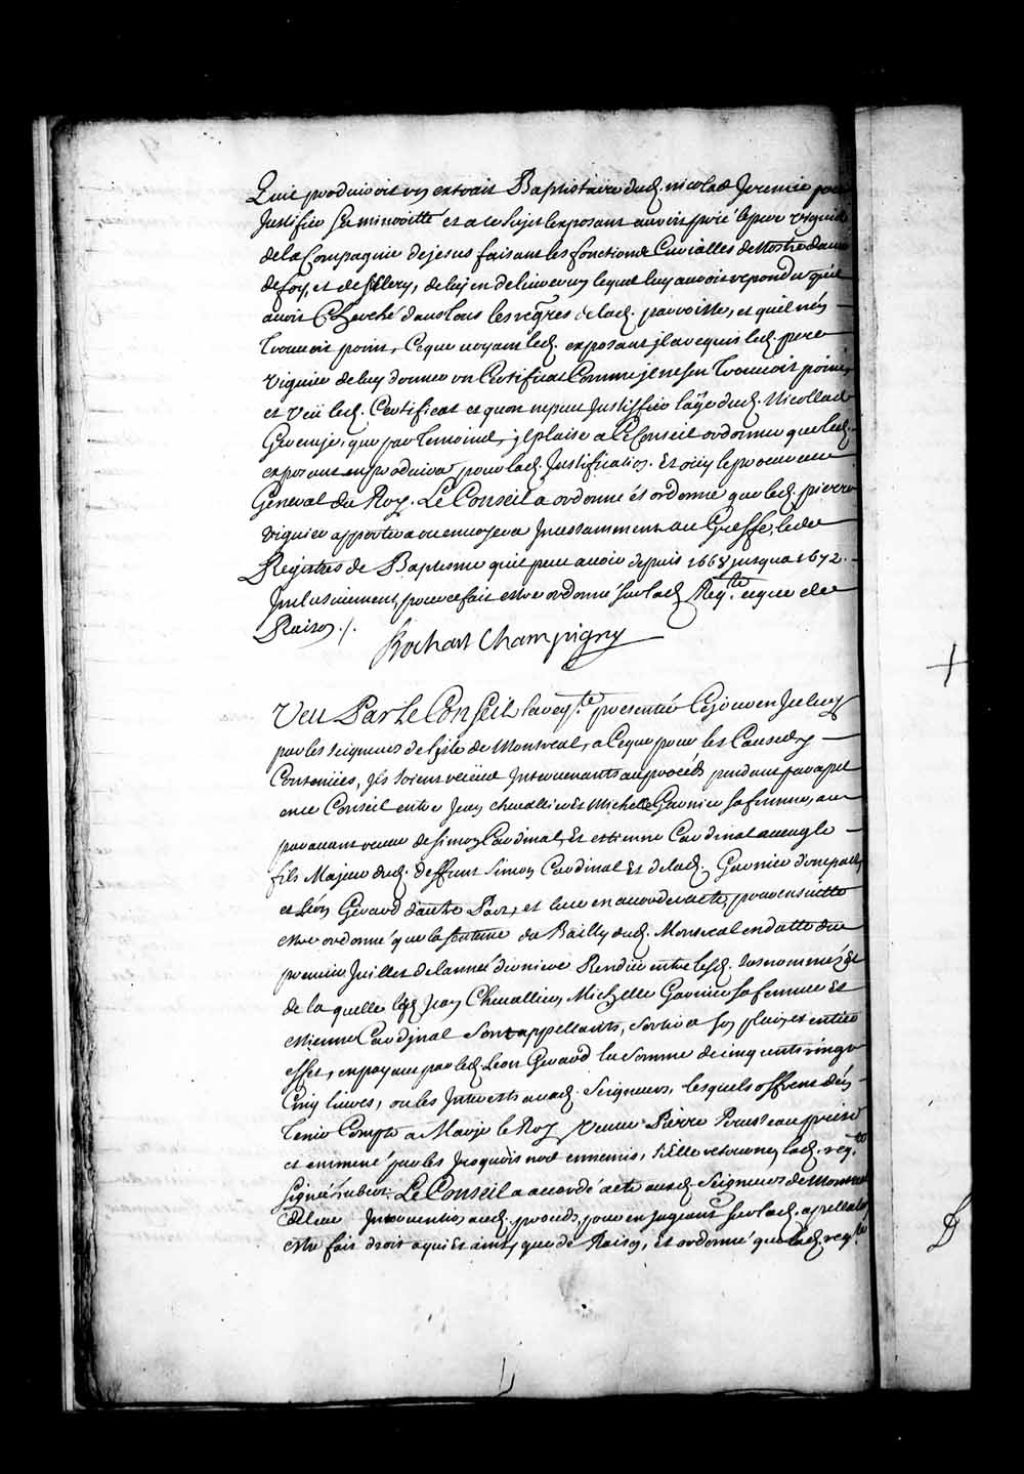 quil produiroit un extrait Baptistaire dud. nicolas Jeremie pour
Justiffier sa minoritté et a ce sujet lexposant auroit prié le pere vignier
de la Compagnie de jesus faisant les fonctions Curialles de Nostre dame
de foy, et de sillery, de luy en delivrer un lequel luy auroit repondu quil
avoit Cherché dans tous les regres de lad. parroisse, et quil nen
trouvoit point, Ce que voyant led. exposant il a requis led. pere
vignier de luy donner un Certificat Comme il ne sen trouvoit point,
et veu led. Certificat et quon ne peut Justiffier laage dud. Nicollas
Geremie, que par temoins, il plaise a Ce Conseil ordonner que led.
exposant en produira pour lad. Justification. Et ouy le procureur
General du Roy. Le Conseil a ordonné et ordonne que led. pierre
vignier apportera ou envoyera Incessamment au Greffe, le ou
Registres de Baptesme quil peut avoir depuis 1668 jusqua 1672.
Inclusivement, pour ce fait estre ordonné sur lad. Reqte. ce que de
Raison ./.
Bochart Champigny
Veu Par Le Conseil la reqte. presentée Ce jourdhuy
par les seigneurs de lisle de Montreal, a Ce que pour les Causes y
Contenües, Ils soient receüs Intervenants au procés pendant par appel
en ce Conseil entre Jean chevallier et Michelle Garnier sa femme, au
paravant veuve de simon Cardinal, Et estienne Cardinal aveugle
fils Majeur dud. deffunt simon Cardinal Et de lad. Garnier dune part,
et Léon Geraud dautre Part, et leur en accorder acte, pour ensuitte
estre ordonné que la sentence du Bailly dud. Montreal en datte du
premier Juillet de lanneé derniere Rendüe entre lesd. susnommés Et
de la quelle lesd. Jean Chevallier, Michelle Garnier sa femme Et
estienne Cardinal sont appellants, sortira son plain et entier
effet, en payant par led. Leon Geraud la somme de cinq cents vingt
Cinq livres, ou les Interests auxd. Seigneurs, lesquels offrent den
tenir Compte a Marie le Roy veuve Pierre Perusseau prise
et emmené par les Iroquois nos ennemis, si Elle retourne, lad. reqte
signé Le Conseil a accordé acte auxd. Seigneurs de Montreal
de leur Intervention aud. procés, pour en jugeant sur lad. appellation
estre fait droit a qui Et ainsy que de Raison, Et ordonné que lad. reqte